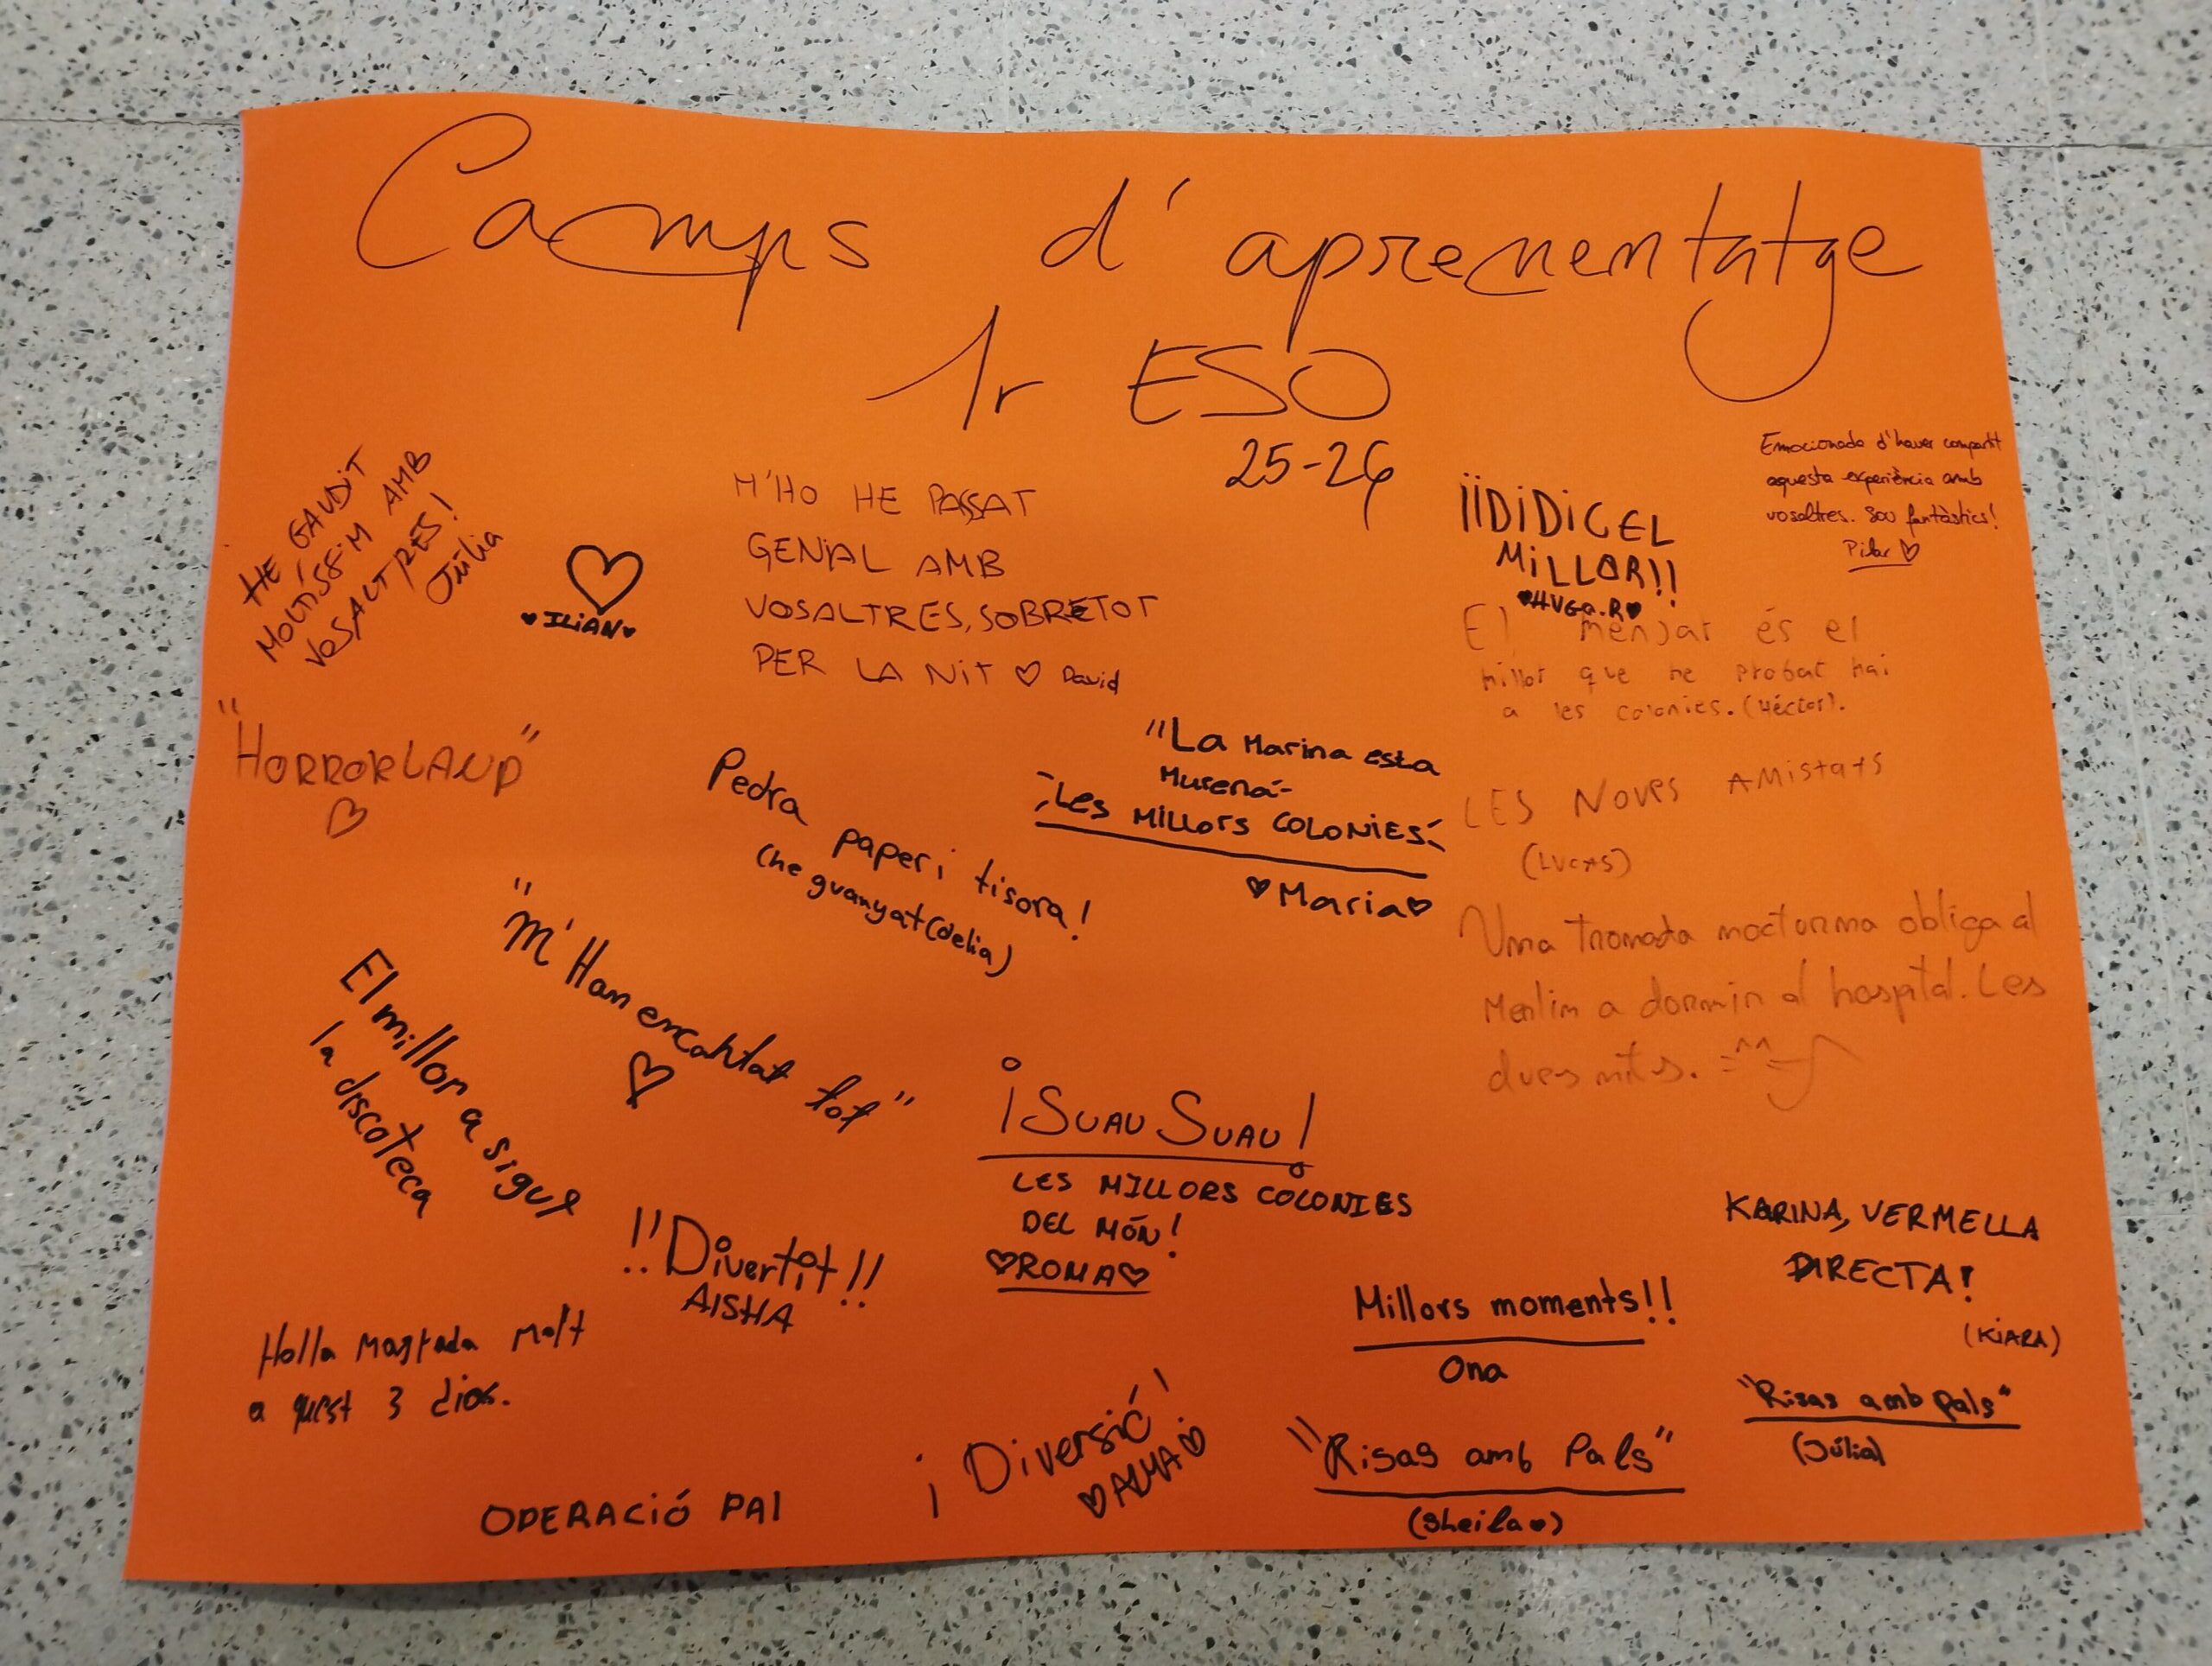 Camps d'aprenentatge
1r ESO
25-26
HE GAUDIT
MOLTÍSSIM AMB
VOSALTRES!
Júlia
ILIAN
M'HO HE PASSAT
GENIAL AMB
VOSALTRES, SOBRETOT
PER LA NIT ♡ David
¡¡DIDIGEL
MILLOR!!
♥HUGO.R♥
Emocionada d'haver compartit
aquesta experiència amb
vosaltres. Sou fantàstics!
Pilar ♡
El menjar és el
millor que he probat mai
a les colonies. (Héctor).
"HORRORLAND"
♡
Pedra paper i tisora!
(he guanyat (delia)
"La Marina esta
Murená-
¡Les MILLORS COLONIES!
♡Maria♡
LES NOVES AMISTATS
(LUCAS)
Una tronada nocturna obliga al
Merlim a dormir al hospital. Les
dues nits.
"M'Han encantat tot"
♡
El millor a sigut
la discoteca
¡SUAU SUAU!
LES MILLORS COLONIES
DEL MÓN!
♡ROMA♡
!!Divertit!!
AISHA
KARINA, VERMELLA
DIRECTA!
(KIARA)
Millors moments!!
Ona
Holla Magrada molt
a quest 3 dias.
"Risas amb pals"
(Júlia)
¡Diversió!
♡ALMA♡
"Risas amb Pals"
(Sheila♥)
OPERACIÓ PAI